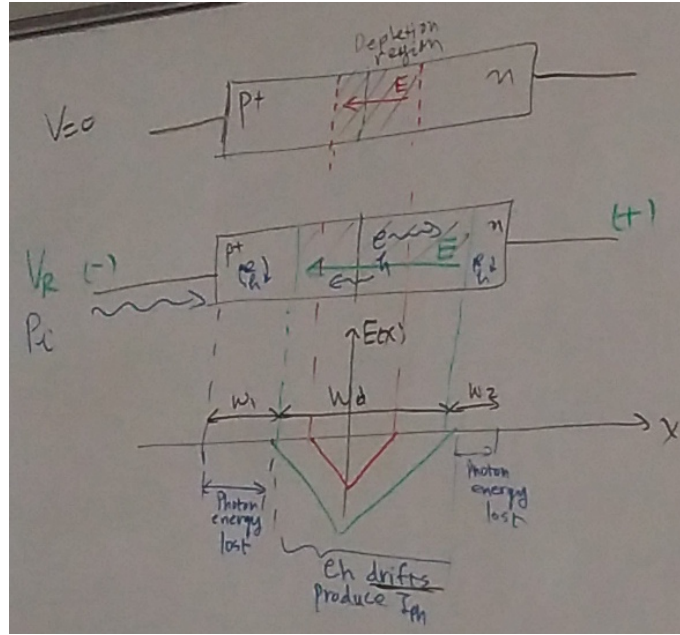 Depletion
region
V=0
p+
E
n
VR (-)
p+
e
h
e
h
E
n
e
h
(+)
Pi
E(x)
W1
Wd
W2
X
Photon
energy
lost
Photon
energy
lost
eh drifts
produce Iph